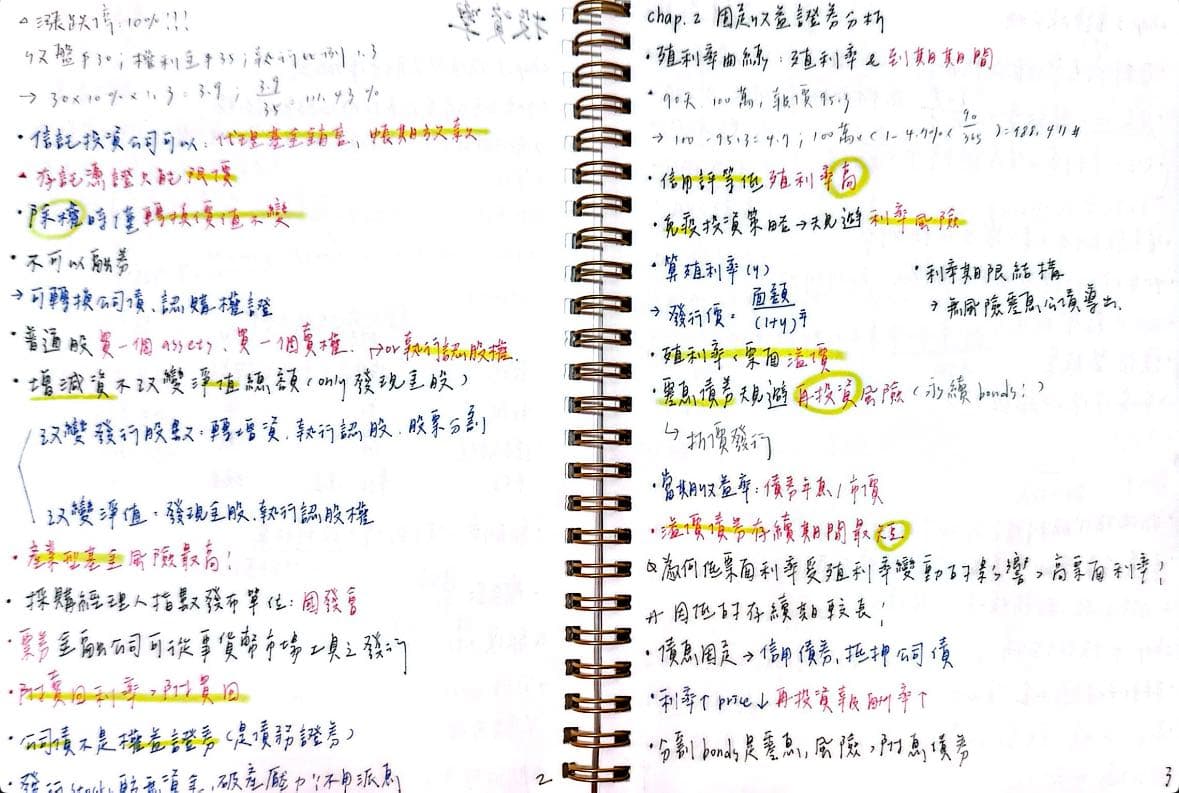 △漲跌停:10%!!!
收盤$30;權利金$35;執行比例1.3
→ 30×10%×1.3=3.9; 3.9/35 = 11.43%
•信託投資公司可以:代理基金銷售,
▲存託憑證只能限價
•除權時僅轉換價值不變
•不可以融券
→可轉換公司債、認購權證
•普通股買一個assets、買一個賣權. or執行認股權.
•增減資不改變淨值總額(only發現金股)
改變發行股數:轉增資、執行認股、股票分割
改變淨值:發現金股、執行認股權
•產業型基金風險最高!
•採購經理人指數發布單位:國發會
•票券金融公司可從事貨幣市場工具之發行
•附賣回利率>附買回
•公司債不是權益證券(是債務證券)
•發行stock,破產壓力 不用派息
2
投資學
chap.2 固定收益證券分析
•殖利率曲線:殖利率&到期期間
•90天、100萬,報價95.3
→ 100-95.3=4.7;100萬×(1-4.7%×90/365)=988,411#
•信用評等低殖利率高
•免疫投資策略→規避利率風險
•算殖利率(y)
→發行價=面額/(1+y)^年
•利率期限結構
→無風險零息公債導出.
•殖利率<票面溢價
•零息債券規避再投資風險(永續bonds:)
↳折價發行
•當期收益率:債券年息/市價
•溢價債券存續期間最短
Q為何低票面利率受殖利率變動時影響>高票面利率?
因低時存續期較長!
•債息固定→信用債券、抵押公司債
•利率↑price↓再投資報酬率↑
•分割bonds是零息,風險>附息債券
3